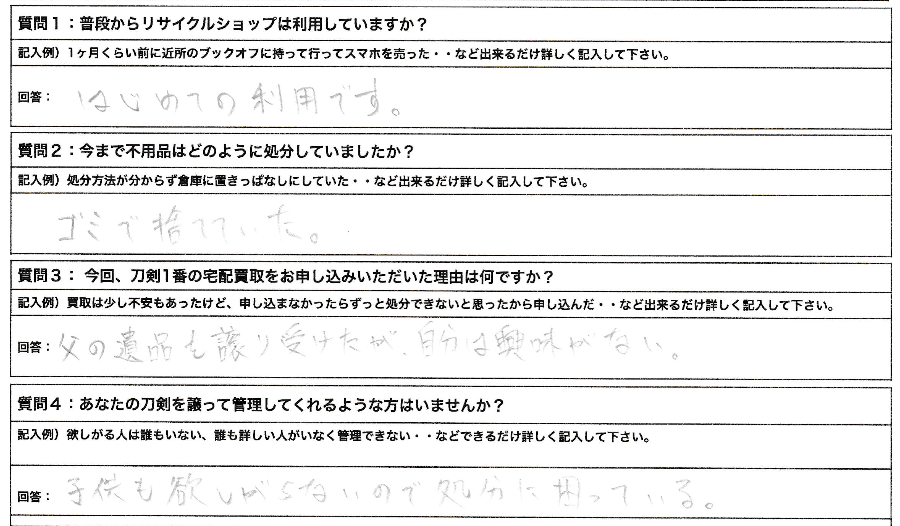 質問1：普段からリサイクルショップは利用していますか？
記入例）1ヶ月くらい前に近所のブックオフに持って行ってスマホを売った・・など出来るだけ詳しく記入して下さい。
回答： はじめての利用です。
質問2：今まで不用品はどのように処分していましたか？
記入例）処分方法が分からず倉庫に置きっぱなしにしていた・・など出来るだけ詳しく記入して下さい。
ゴミで捨てていた。
質問3： 今回、刀剣1番の宅配買取をお申し込みいただいた理由は何ですか？
記入例）買取は少し不安もあったけど、申し込まなかったらずっと処分できないと思ったから申し込んだ・・など出来るだけ詳しく記入して下さい。
回答： 父の遺品を譲り受けたが、自分は興味がない。
質問4：あなたの刀剣を譲って管理してくれるような方はいませんか？
記入例）欲しがる人は誰もいない、誰も詳しい人がいなく管理できない・・などできるだけ詳しく記入して下さい。
回答： 子供も欲しがらないので処分に困っている。